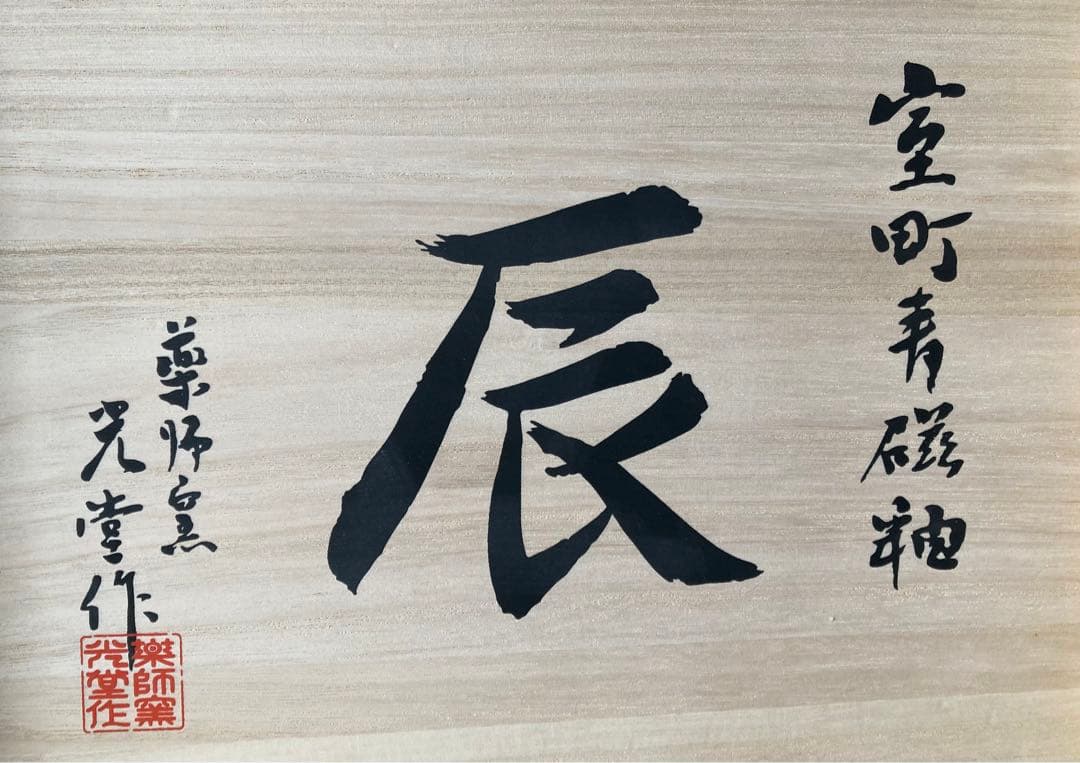 室町青磁釉
辰
薬師窯
光堂作
薬師窯
光堂作